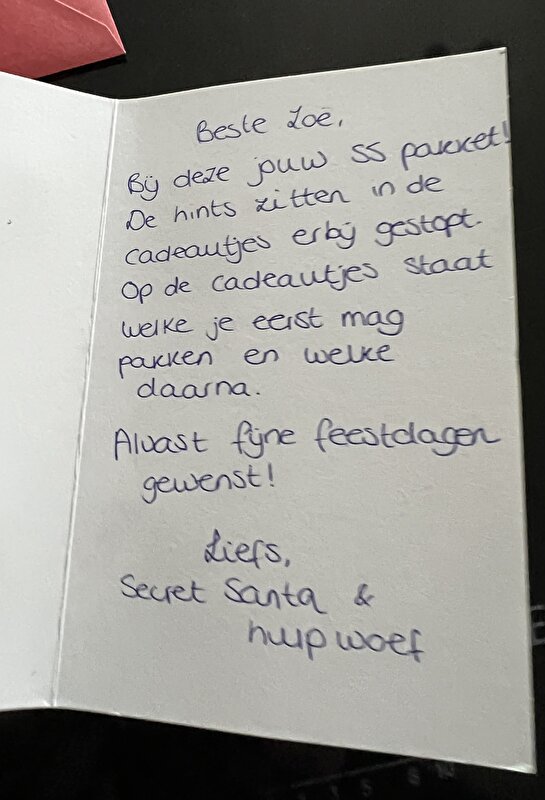 Beste Zoë,
Bij deze jouw SS pakket!
De hints zitten in de
cadeautjes erbij gestopt.
Op de cadeautjes staat
welke je eerst mag
pakken en welke
daarna.
Alvast fijne feestdagen
gewenst!
Liefs,
Secret Santa &
hulp woef